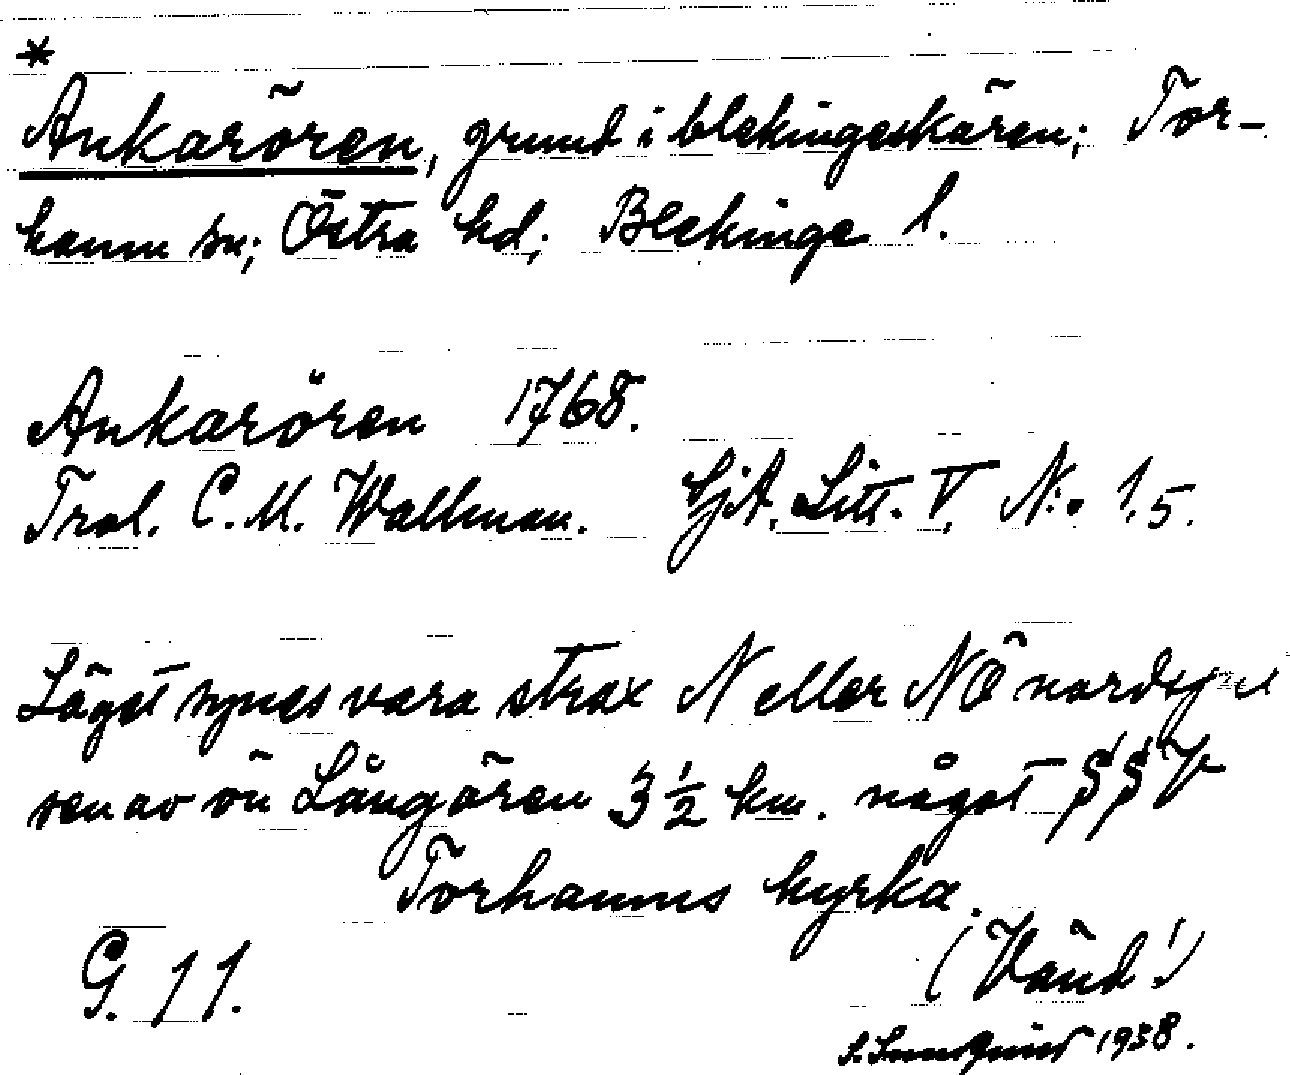 *
Ankarören, grund i blekingeskären; Tor-
hamn sn; Östra hd; Blekinge l.
Ankarören 1768.
Trol. C. M. Wallman. SjA. Litt. V. N:o 1.5.
Läget synes vara strax N eller NÖ nordspet
sen av ön Långören 3 ½ km. något SSV
Torhamns kyrka.
G. 11.
(Vänd!)
S. Sundquist 1938.